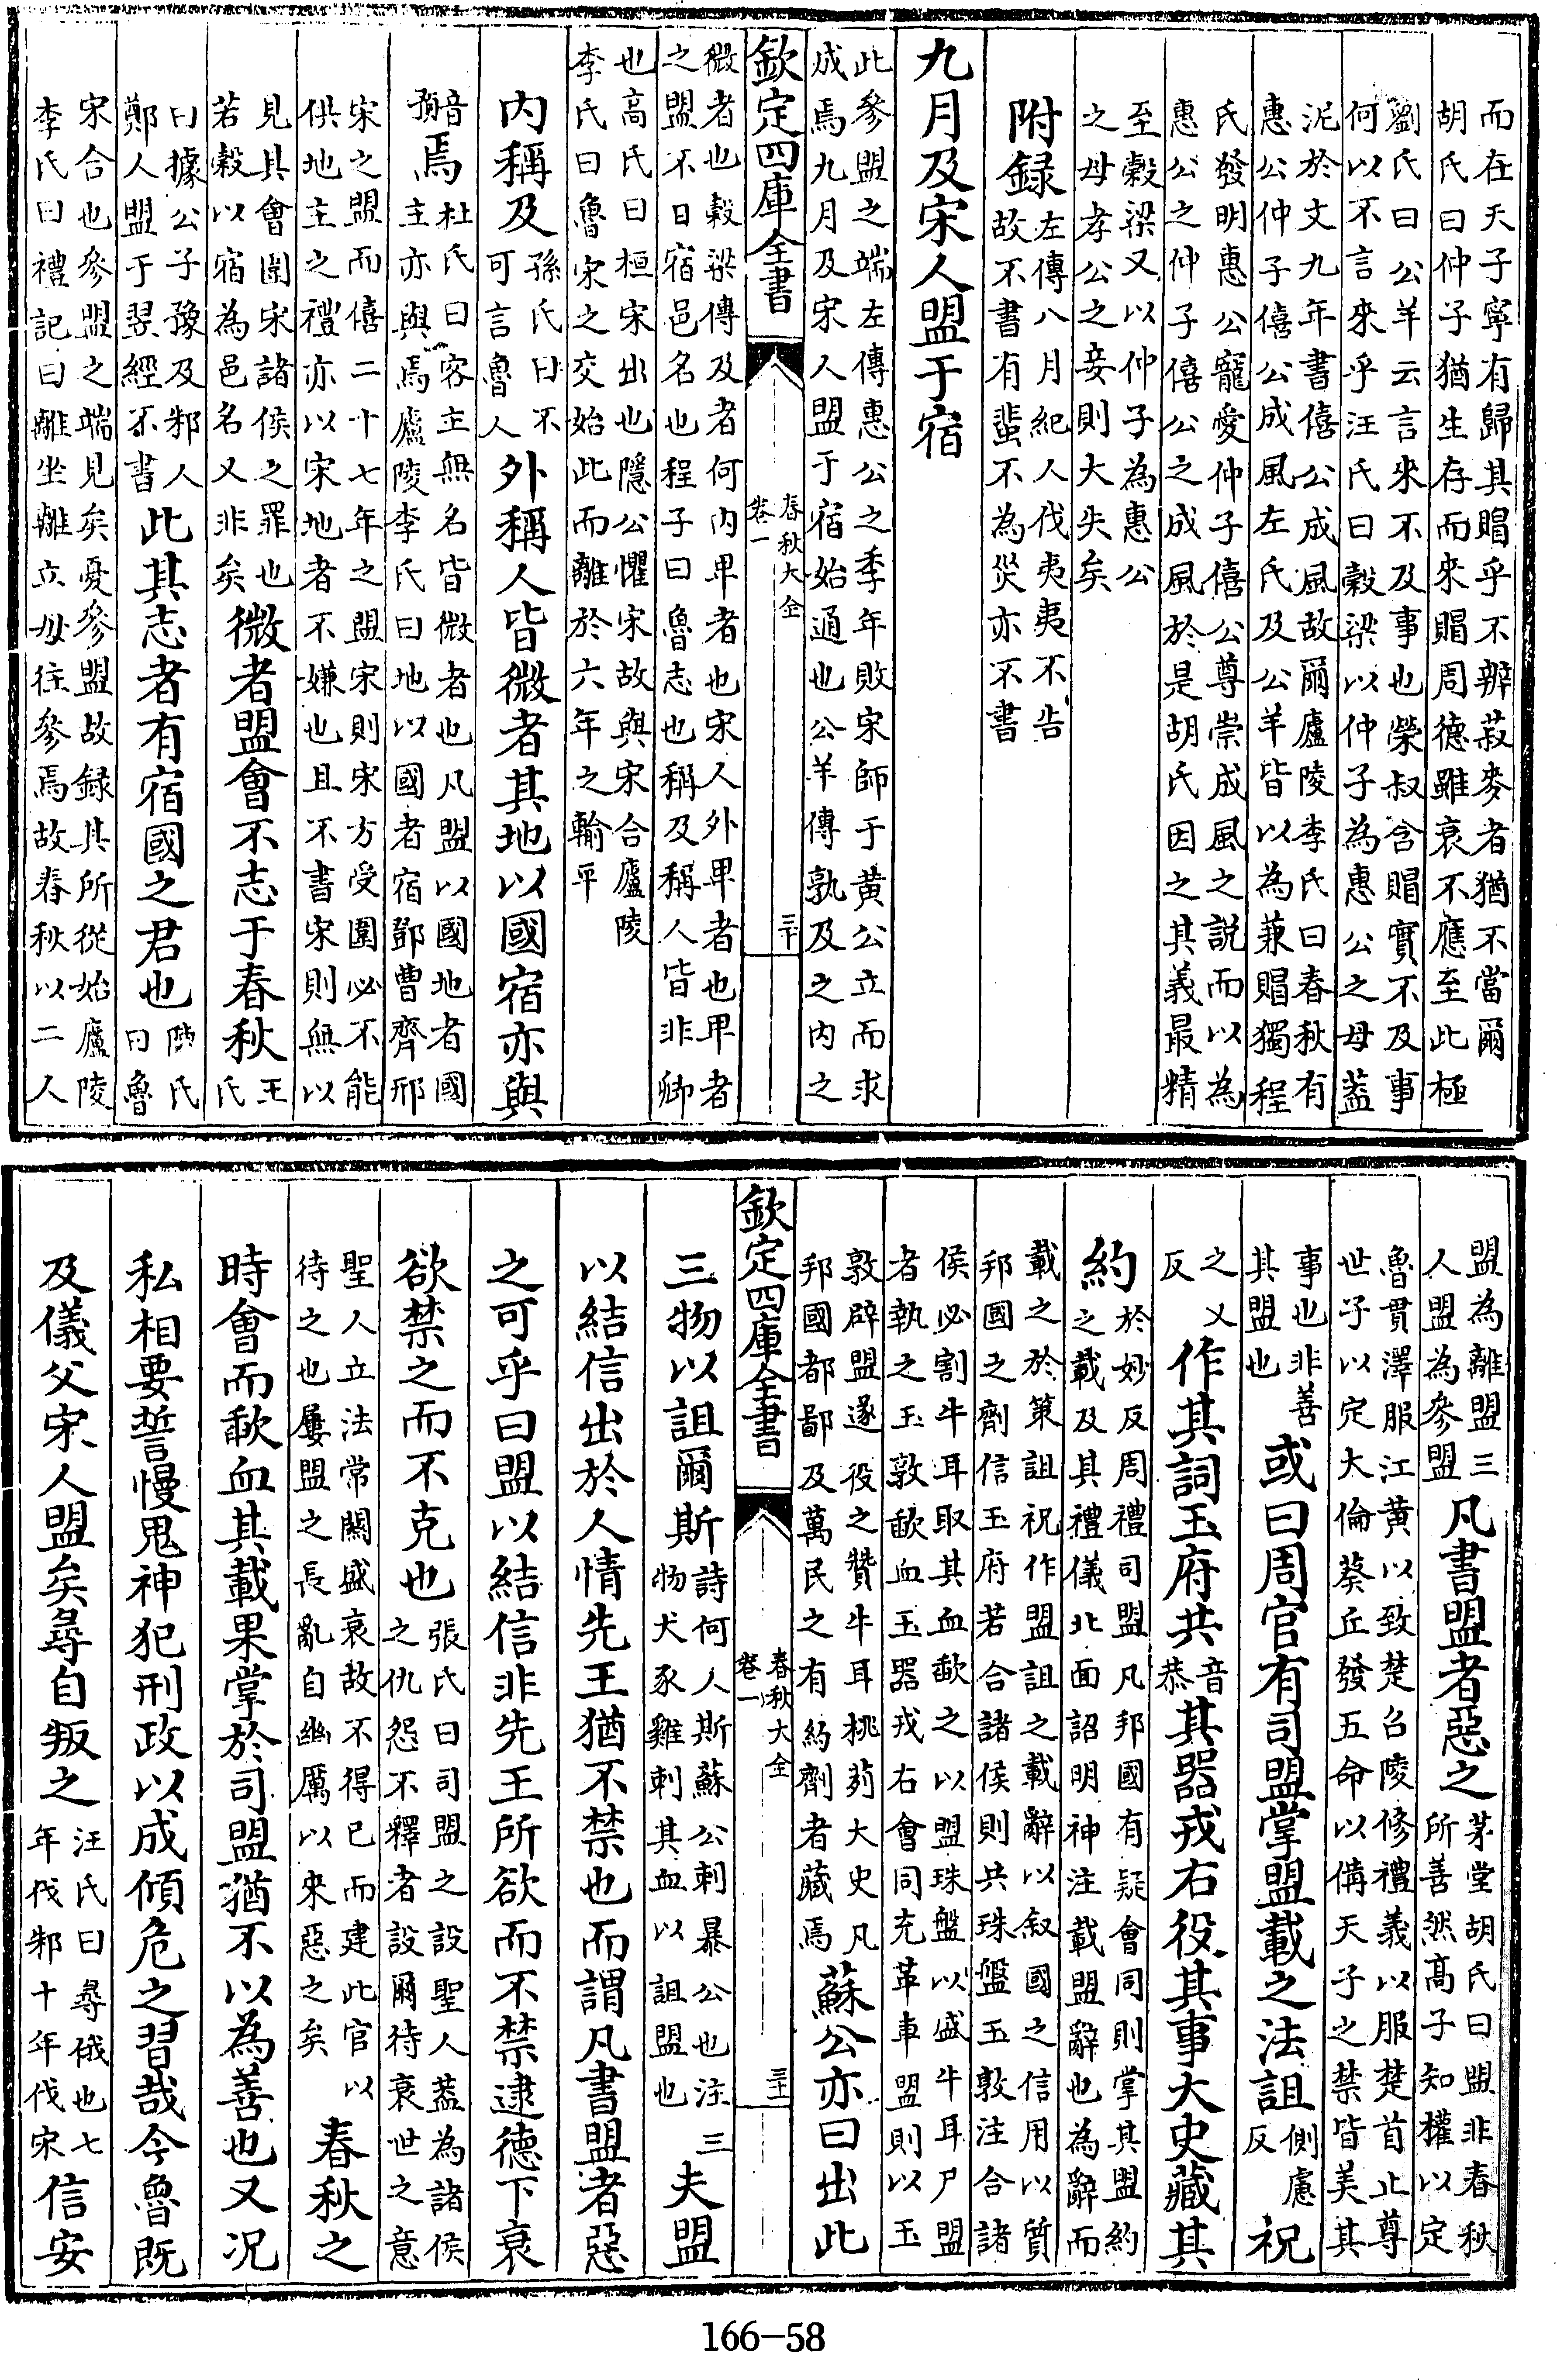 而在天子寧有歸其賵乎不辨菽麥者猶不當爾
胡氏曰仲子猶生存而來賵周德雖衰不應至此極
劉氏曰公羊云言來不及事也榮叔含賵實不及事
何以不言來乎汪氏曰穀梁以仲子為惠公之母葢
泥於文九年書僖公成風故爾廬陵李氏曰春秋有
惠公仲子僖公成風左氏及公羊皆以為兼賵獨程
氏發明惠公寵愛仲子僖公尊崇成風之説而以為
惠公之仲子僖公之成風於是胡氏因之其義最精
至穀梁又以仲子為惠公
之母孝公之妾則大失矣
附録左傳八月紀人伐夷夷不告故不書有蜚不為災亦不書
九月及宋人盟于宿
此參盟之端左傳惠公之季年敗宋師于黄公立而求
成焉九月及宋人盟于宿始通也公羊傳孰及之内之
欽定四庫全書 春秋大全 卷一 三十
微者也穀梁傳及者何内卑者也宋人外卑者也卑者
之盟不日宿邑名也程子曰魯志也稱及稱人皆非卿
也高氏曰桓宋出也隱公懼宋故與宋合廬陵
李氏曰魯宋之交始此而離於六年之輸平
内稱及孫氏曰不可言魯人外稱人皆微者其地以國宿亦與
音預焉杜氏曰客主無名皆微者也凡盟以國地者國主亦與焉廬陵李氏曰地以國者宿鄧曹齊邢
宋之盟而僖二十七年之盟宋則宋方受圍必不能
供地主之禮亦以宋地者不嫌也且不書宋則無以
見其會圍宋諸侯之罪也若穀以宿為邑名又非矣微者盟會不志于春秋王氏
曰據公子豫及邾人鄭人盟于翼經不書此其志者有宿國之君也陳氏曰魯
宋合也參盟之端見矣憂參盟故録其所從始廬陵
李氏曰禮記曰離坐離立毋往參焉故春秋以二人
盟為離盟三人盟為參盟凡書盟者惡之茅堂胡氏曰盟非春秋所善然高子知權以定
魯貫澤服江黄以致楚召陵修禮義以服楚首止尊
世子以定大倫葵丘發五命以備天子之禁皆美其
事也非善其盟也或曰周官有司盟掌盟載之法詛側慮反祝
之又反作其詞玉府共音恭其器戎右役其事大史藏其
約於妙反周禮司盟凡邦國有疑會同則掌其盟約之載及其禮儀北面詔明神注載盟辭也為辭而
載之於策詛祝作盟詛之載辭以叙國之信用以質
邦國之劑信玉府若合諸侯則共珠盤玉敦注合諸
侯必割牛耳取其血歃之以盟珠盤以盛牛耳尸盟
者執之玉敦歃血玉器戎右會同充革車盟則以玉
敦辟盟遂役之贊牛耳桃茢大史凡邦國都鄙及萬民之有約劑者藏焉蘇公亦曰出此
欽定四庫全書 春秋大全 卷一 三十一
三物以詛爾斯詩何人斯蘇公刺暴公也注三物犬豕雞刺其血以詛盟也夫盟
以結信出於人情先王猶不禁也而謂凡書盟者惡
之可乎曰盟以結信非先王所欲而不禁逮德下衰
欲禁之而不克也張氏曰司盟之設聖人葢為諸侯之仇怨不釋者設爾待衰世之意
聖人立法常關盛衰故不得已而建此官以待之也屢盟之長亂自幽厲以來惡之矣春秋之
時會而歃血其載果掌於司盟猶不以為善也又况
私相要誓慢鬼神犯刑政以成傾危之習哉今魯既
及儀父宋人盟矣尋自叛之汪氏曰尋俄也七年伐邾十年伐宋信安
166-58